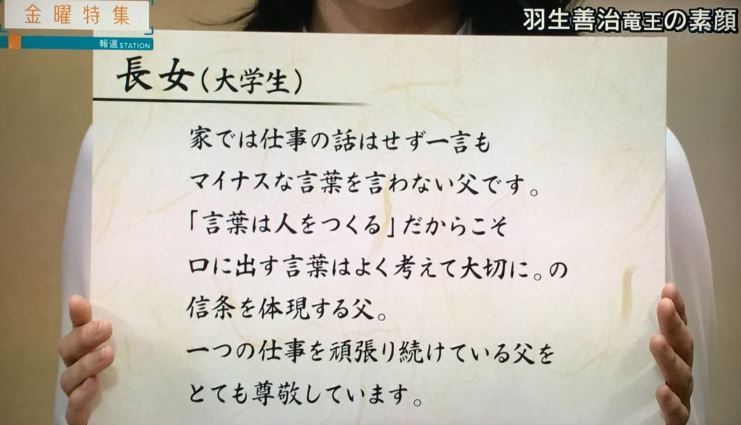 金曜特集
報道STATION
羽生善治竜王の素顔
長女(大学生)
家では仕事の話はせず一言も
マイナスな言葉を言わない父です。
「言葉は人をつくる」だからこそ
口に出す言葉はよく考えて大切に。の
信条を体現する父。
一つの仕事を頑張り続けている父を
とても尊敬しています。